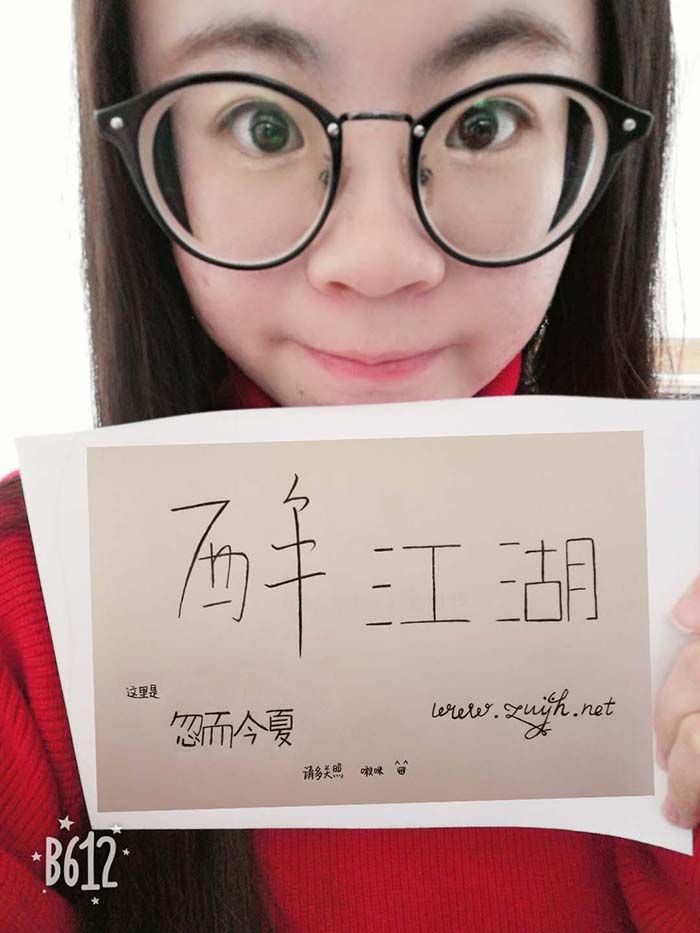 醉江湖
这里是
忽而今夏
www.zuijh.net
请多关照 啾咪
B612